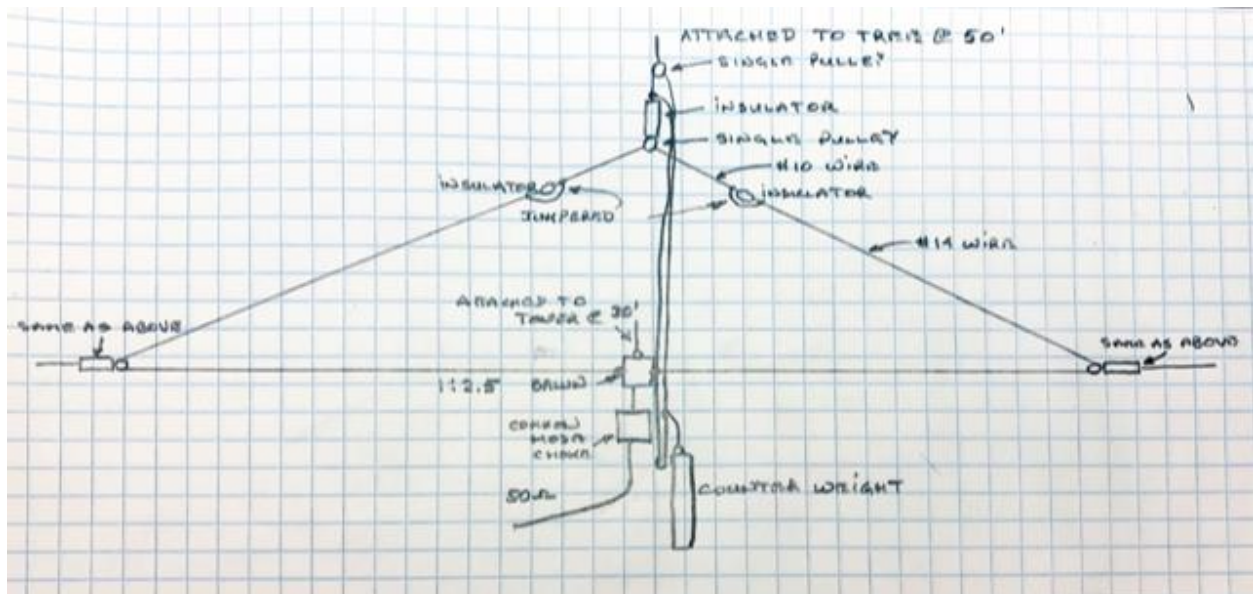 ATTACHED TO TREE @ 50'
SINGLE PULLEY
INSULATOR
SINGLE PULLEY
#10 WIRE
INSULATOR
INSULATOR
JUMPERED
#14 WIRE
ATTACHED TO
TOWER @ 30'
SAME AS ABOVE
SAME AS ABOVE
1:2.5 BALUN
COMMON
MODE
CHOKE
50Ω
COUNTER WEIGHT